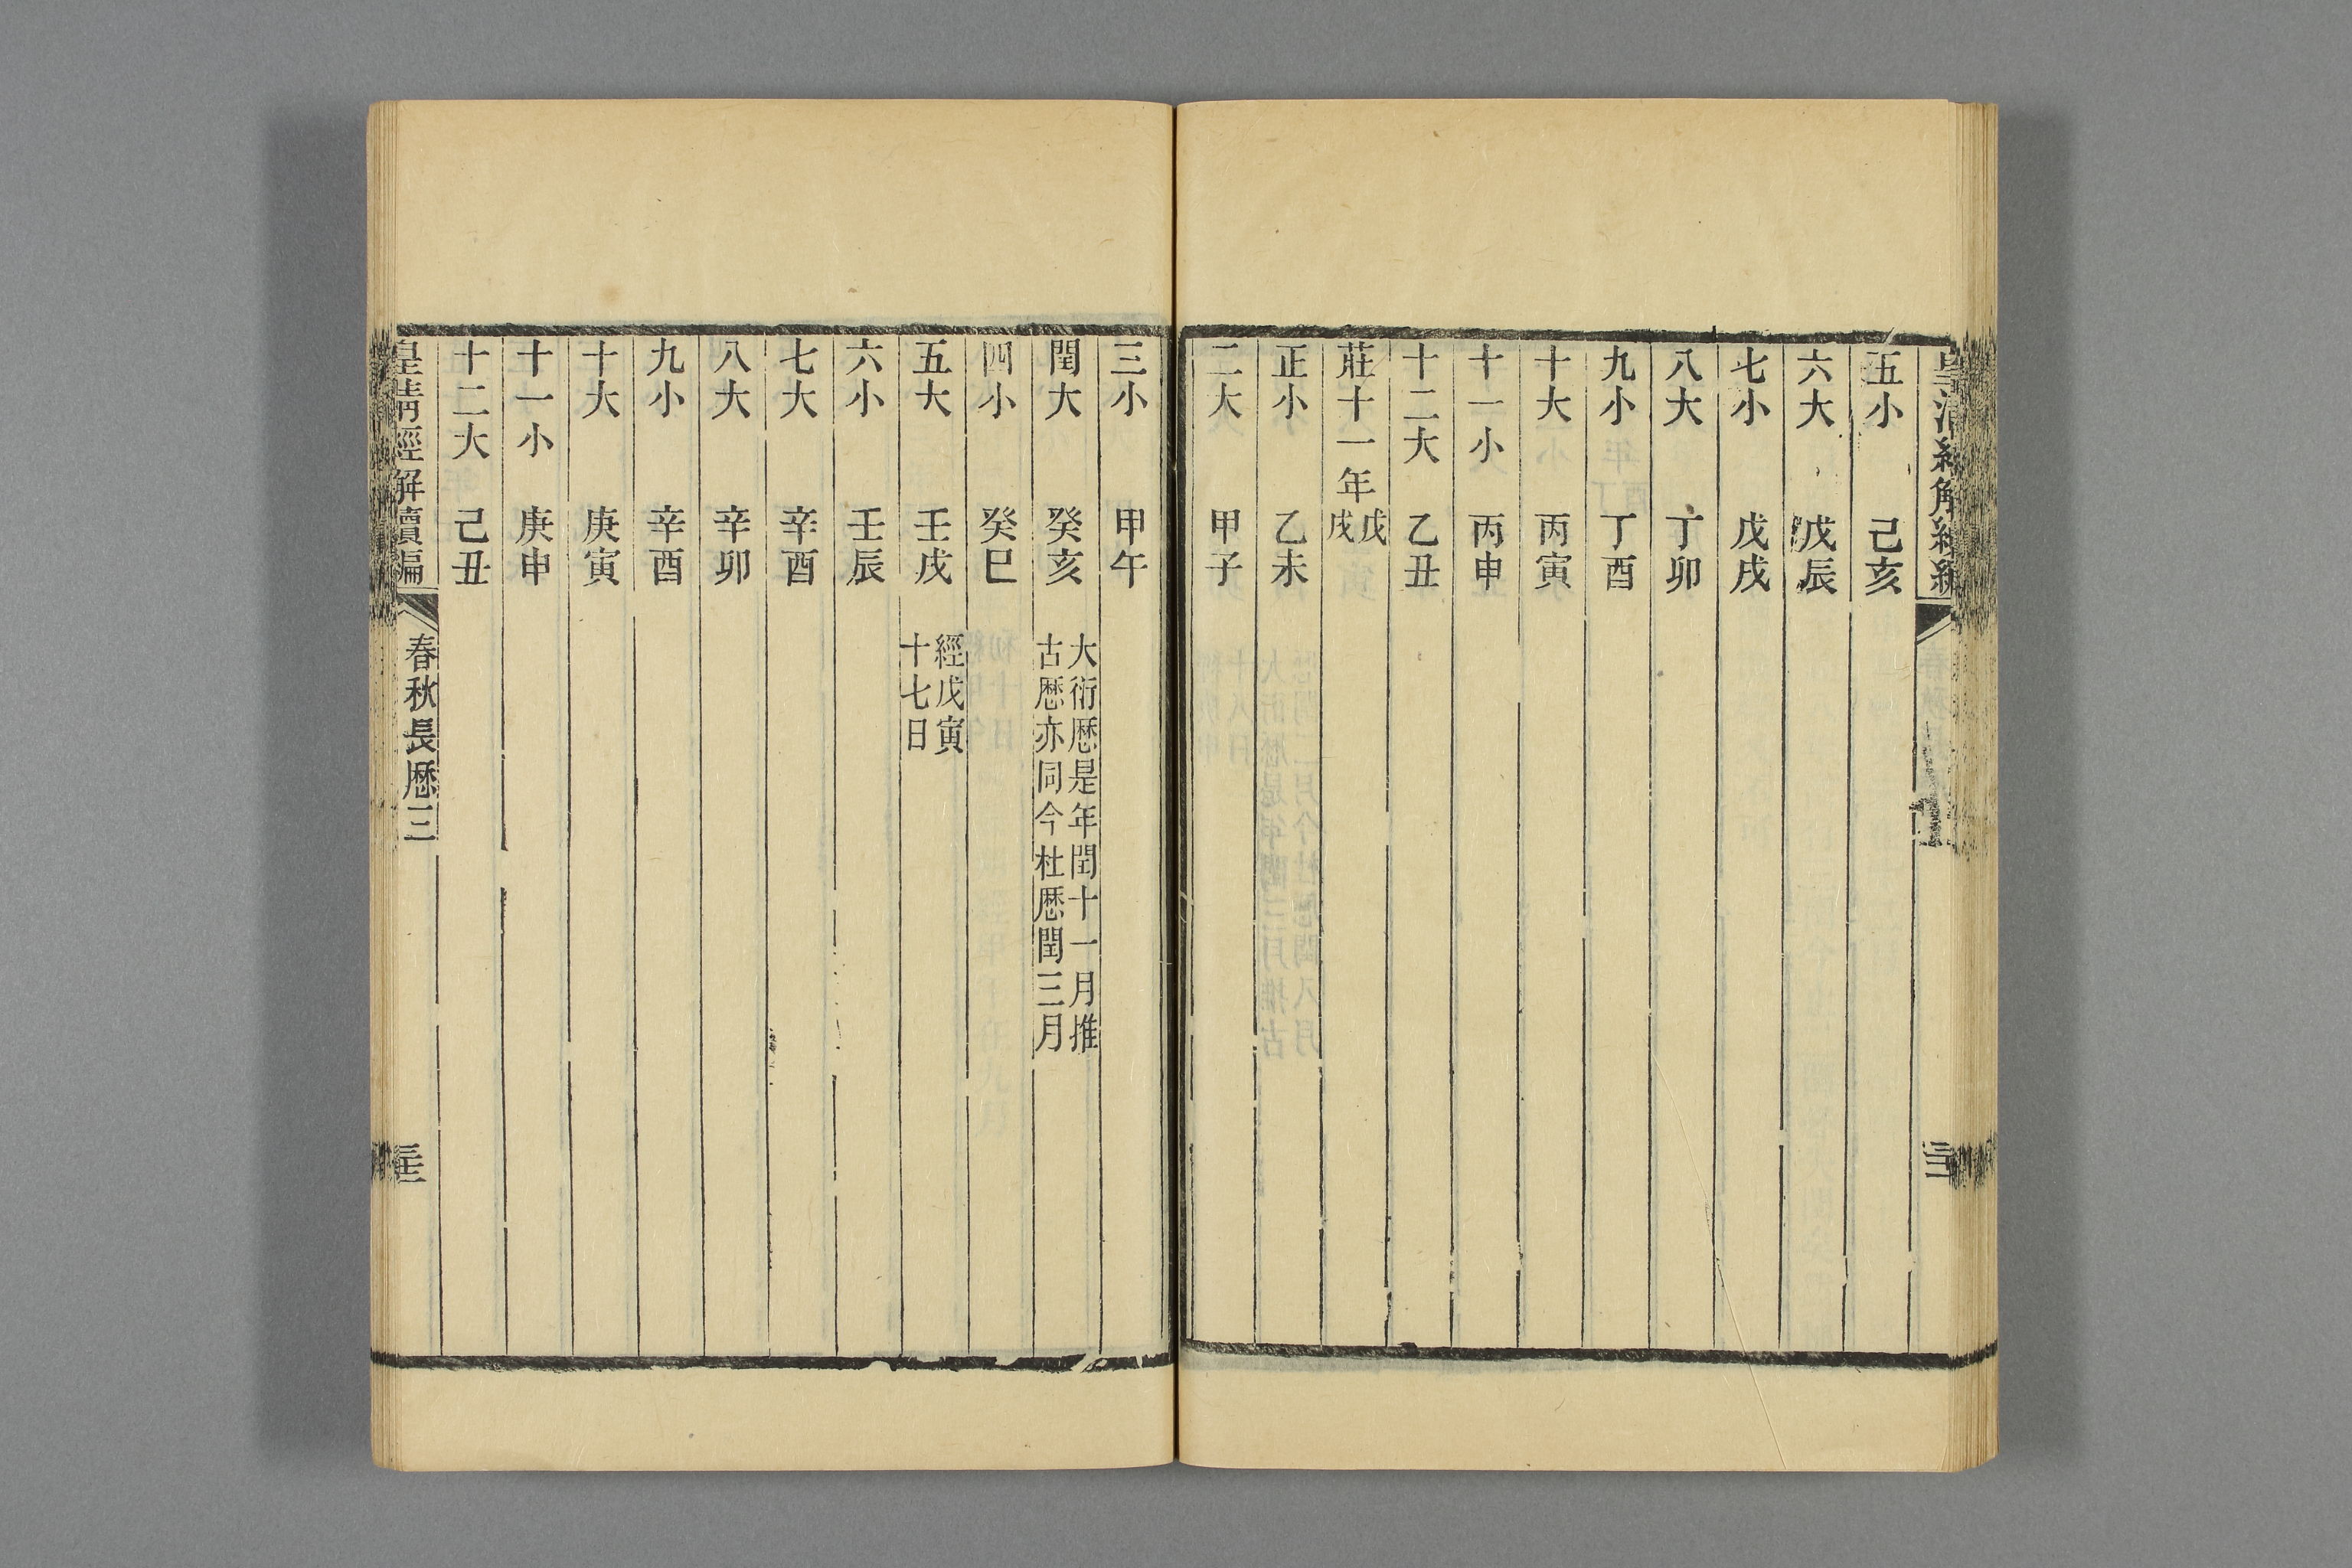 五小 己亥
六大 戊辰
七小 戊戌
八大 丁卯
九小 丁酉
十大 丙寅
十一小 丙申
十二大 乙丑
莊十一年戊戌
正小 乙未
二大 甲子
三小 甲午
閏大 癸亥 大衍厯是年閏十一月推
古厯亦同今杜厯閏三月
四小 癸巳
五大 壬戌 經戊寅
十七日
六小 壬辰
七大 辛酉
八大 辛卯
九小 辛酉
十大 庚寅
十一小 庚申
十二大 己丑
皇清經解續編
春秋長厯三